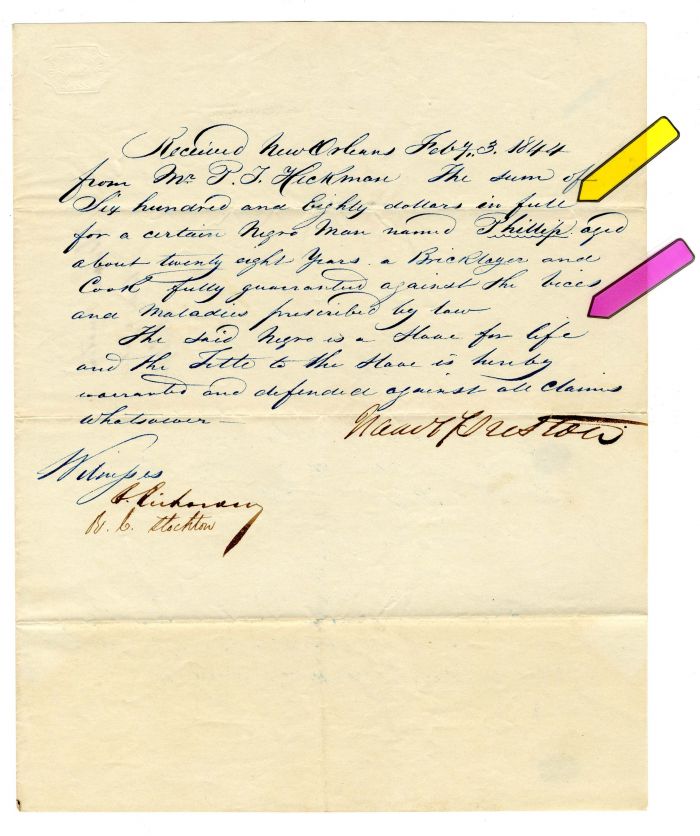 Received New Orleans Feby. 3. 1844
from Mr P. T. Hickman The sum of
Six hundred and Eighty dollars in full
for a certain Negro Man named Phillip aged
about twenty eight Years. a Bricklayer and
Cook fully guarranted against the vices
and Maladies prescribed by law
The said Negro is a Slave for life
and the Title to the Slave is hereby
warranted and defended against all claims
whatsoever —
Witnesses
C. Richardson
R. C. Stockton